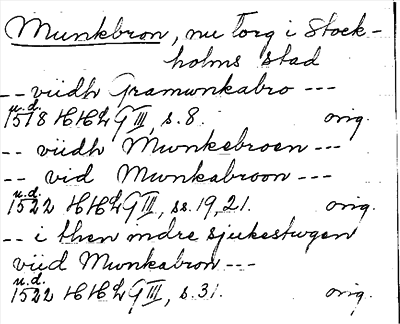 Munkbron, nu torg i Stock-
holms stad
-- viidh Gramunkabro ---
u.d.
1518 HHL GIII, s. 8. orig.
-- viidh Munkebroen ---
-- vid Munkabroon ---
u.d.
1522 HHL GIII, ss. 19, 21. orig.
-- i then indre sjukestugen
viid Munkabron ---
u.d.
1522 HHL GIII, s. 31. orig.